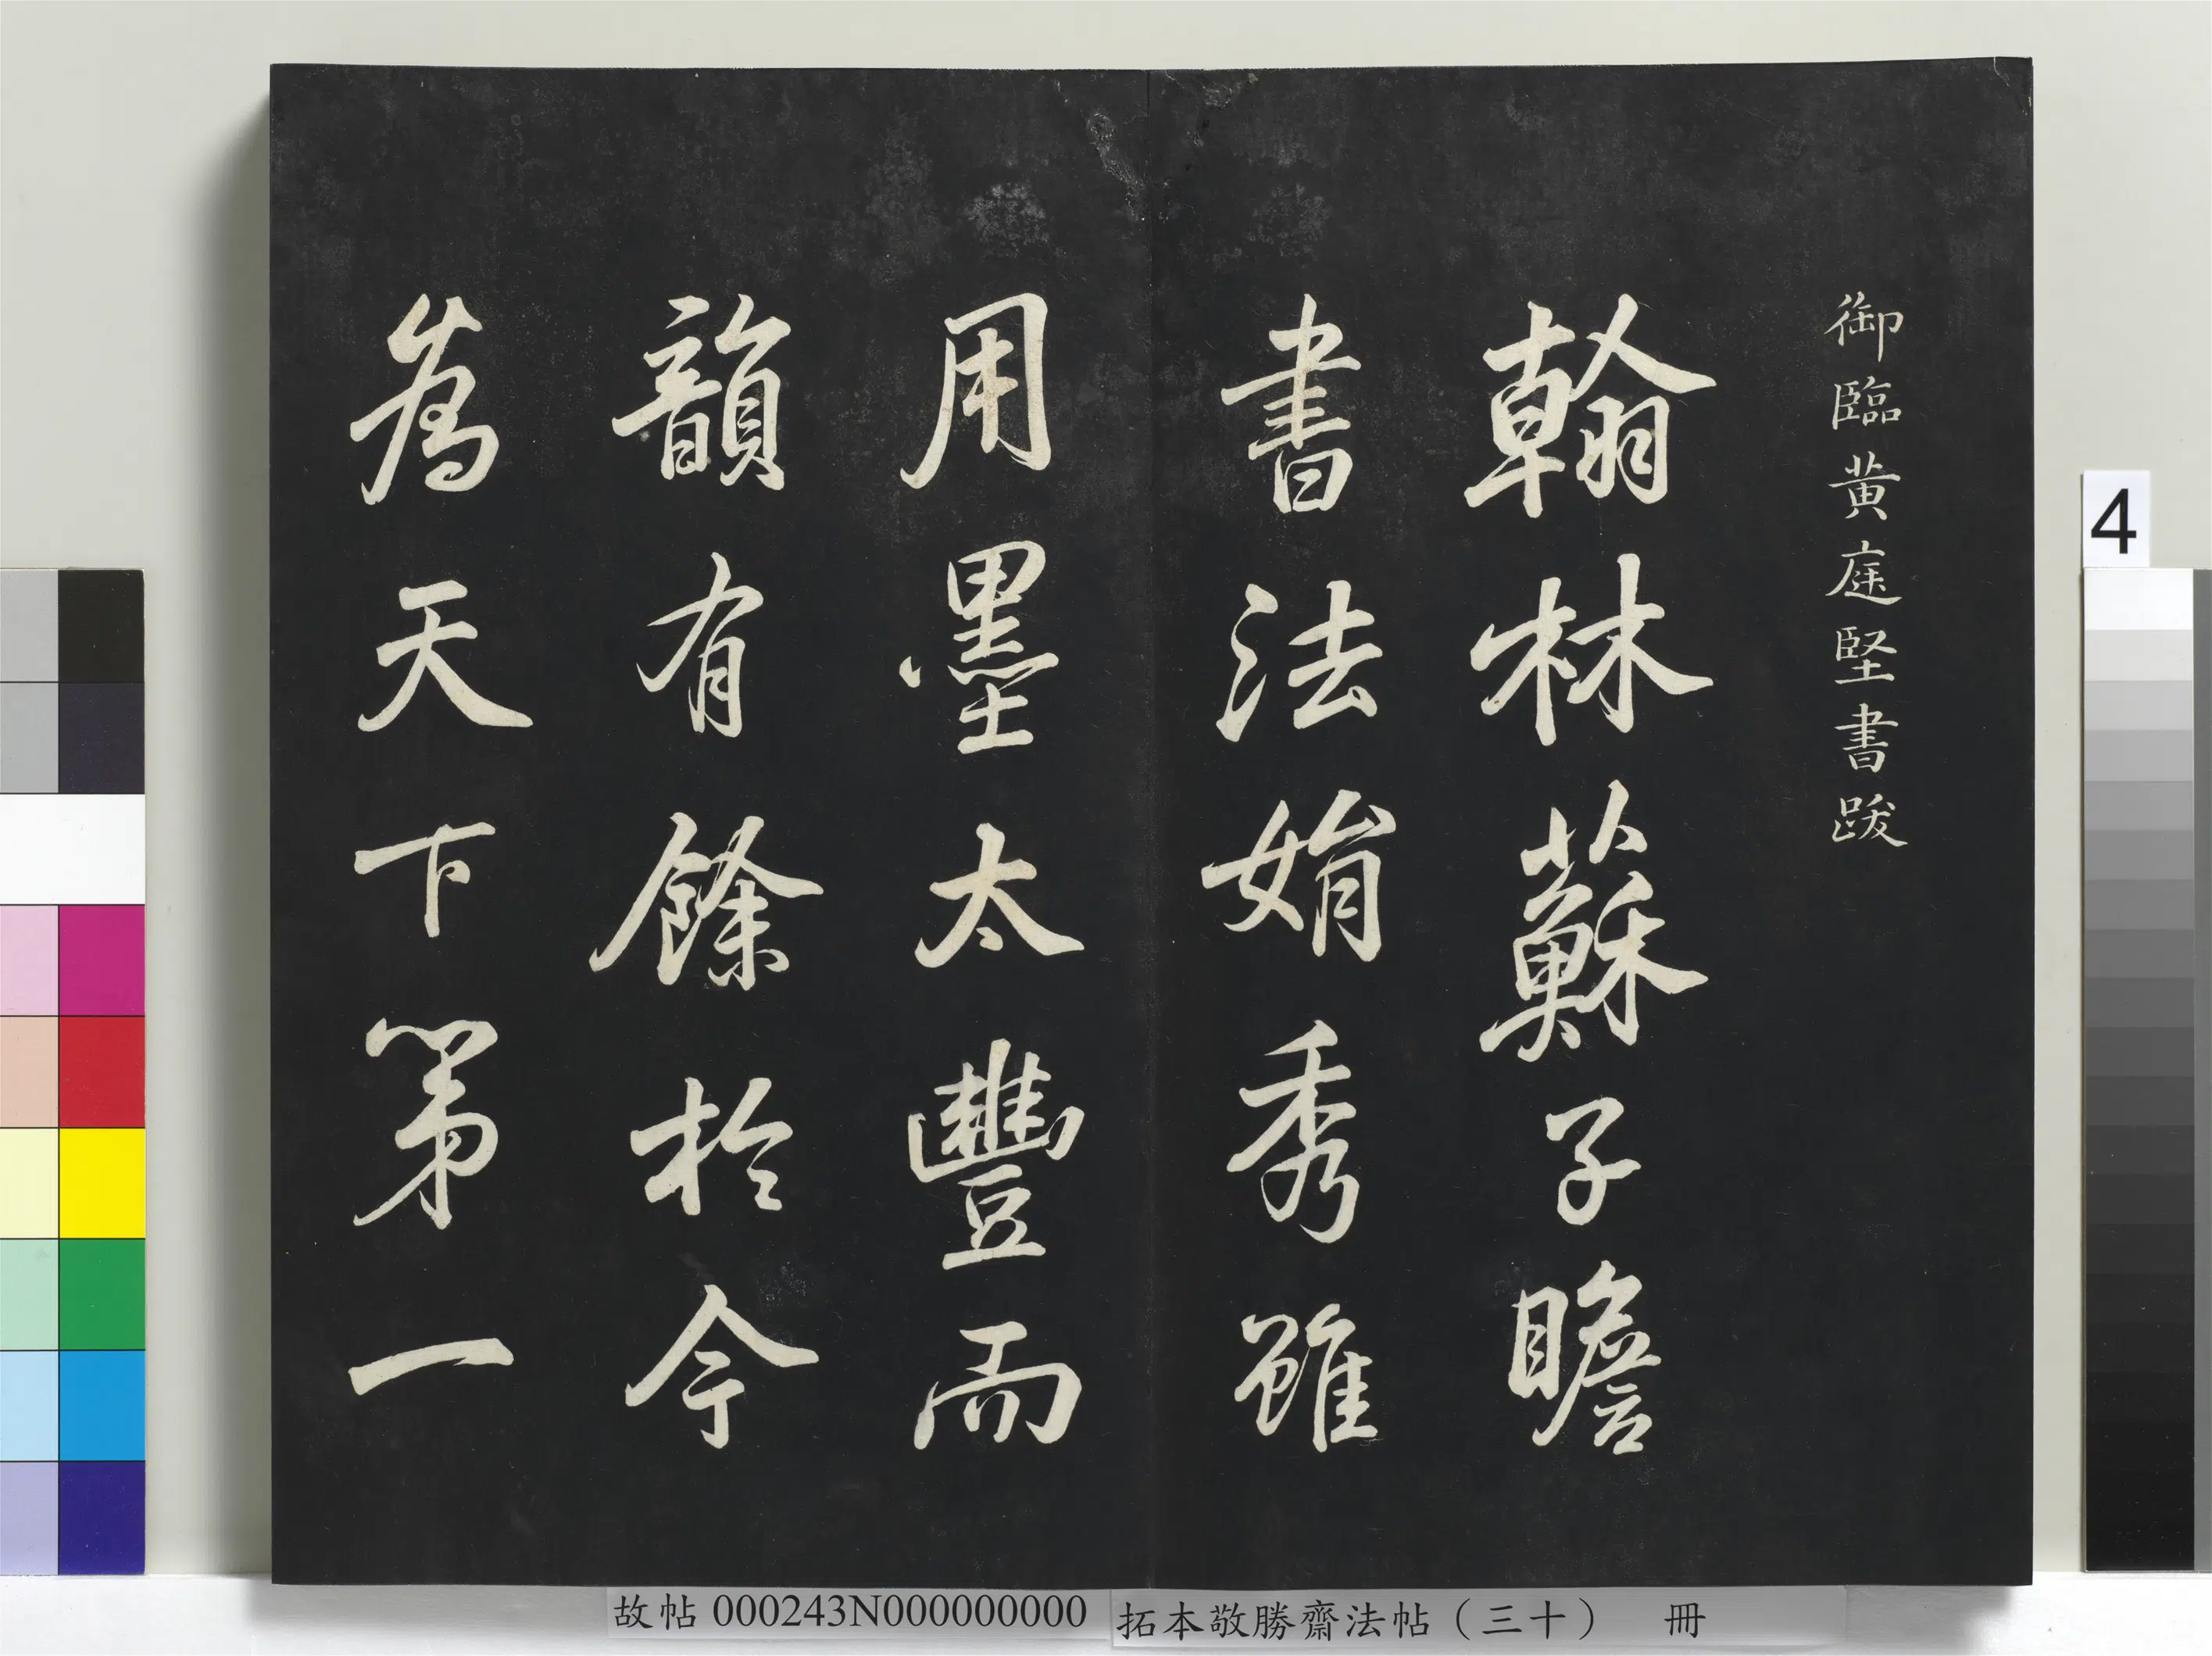 御臨黄庭堅書跋
翰林蘇子瞻
書法娟秀雖
用墨太豐而
韻有餘於今
為天下第一
4
故帖 000243N000000000
拓本敬勝齋法帖（三十） 冊